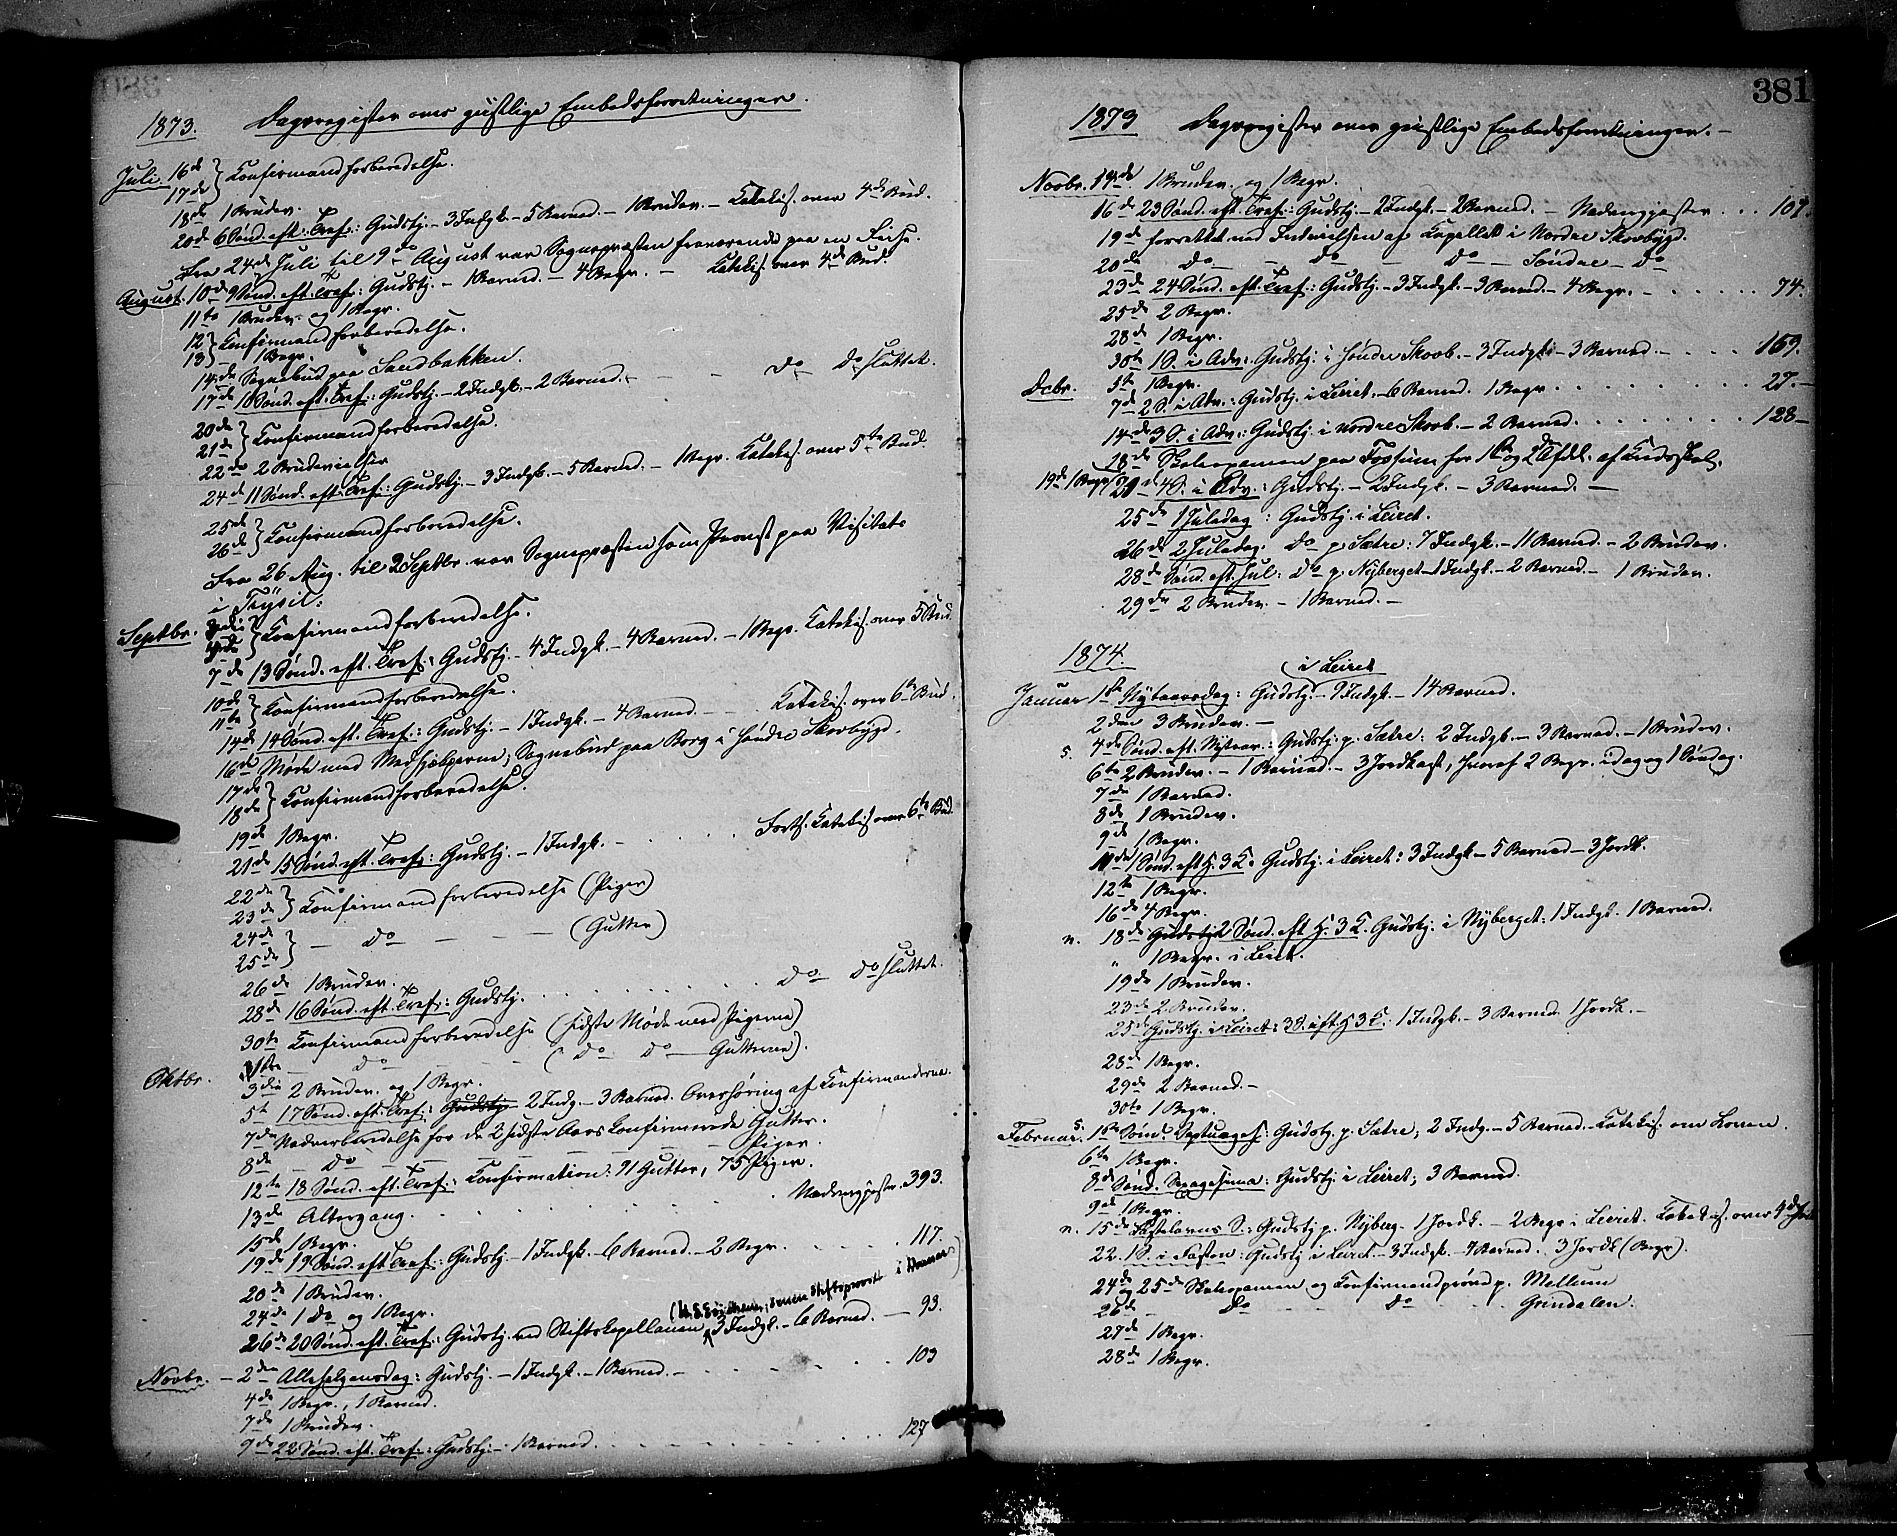 1873. Dagregister over geistlige Embedsforretninger.
Juli 16de } Konfirmandforberedelse.
17de
18de 1 Brudev.
20de 6 Sønd. eft. Tref.: Gudstj. – 3 Indgk. – 5 Barned. – 1 Brudev. – Katekis. over 4de Bud.
Fra 24de Juli til 9de August var Sognepræsten fraværende paa en Reise.
August 10de 9 Sønd. eft. Tref.: Gudstj. – 1 Barned. – 4 Begr. – Katekis. over 4de Bud.
11te 1 Brudev. og 1 Begr.
12 } Konfirmandforberedelse.
13 – 1 Begr.
14de Sognebud paa Sandbakken.
17de 10 Sønd. eft. Tref.: Gudstj. – 2 Indgk. – 2 Barned. – – – Do Do sluttet.
20de } Konfirmandforberedelse.
21de
22de 2 Brudevielser
24de 11 Sønd. eft. Tref.: Gudstj. – 3 Indgk. – 5 Barned. – 1 Begr. Katekis. over 5te Bud.
25de } Konfirmandforberedelse.
26de
Fra 26 Aug. til 2 Septbr. var Sognepræsten som Provst paa Visitats
i Trysil.
Septbr. 3die } Konfirmandforberedelse.
4de
7de 13 Sønd. eft. Tref.: Gudstj. – 4 Indgk. – 4 Barned. – 1 Begr. Katekis. over 5 Bud.
10de } Konfirmandforberedelse.
11te
14de 14 Sønd. eft. Tref.: Gudstj. – 1 Indgk. – 4 Barned. – – Katekis. over 6te Bud.
16de Møde med Medhjælperne; Sognebud paa Borg i søndre Skovbygd.
17de } Konfirmandforberedelse.
18de
19de 1 Begr.
21de 15 Sønd. eft. Tref.: Gudstj. – 1 Indgk. – . . . . Forts. Katekis. over 6te Bud.
22de } Konfirmandforberedelse (Piger)
23de
24de } – Do – – – (Gutter)
25de
26de 1 Brudev.
28de 16 Sønd. eft. Tref.: Gudstj. . . . . . . . . . Do Do sluttet.
30te Konfirmandforberedelse (sidste Møde med Pigerne)
Oktbr. 1ste – Do – – (Do Do – Gutterne).
3die 2 Brudev. og 1 Begr.
5te 17 Sønd. eft. Tref.: Gudstj. 2 Indg. – 3 Barned. Overhøring af Konfirmanderne.
7de Nadverberedelse for de 2 sidste Aars Konfirmerede Gutter.
8de – Do – – – – – – Piger.
12te 18 Sønd. eft. Tref.: Konfirmation: 91 Gutter, 75 Piger.
13de Altergang. . . . . . . . Nadvergjester. 393.
15de 1 Begr.
19de 19 Sønd. eft. Tref.: Gudstj. – 1 Indgk. – 6 Barned. – 2 Begr. . . . . 117.
20de 1 Brudev.
24de 1 Do og 1 Begr.
senere Stiftsprovst i Hamar)
26de 20 Sønd. eft. Tref.: Gudstj. ved Stiftskapellanen 3 Indgk. – 6 Barned. – 93.
Novbr. – 2den Allehelgensdag: Gudstj. – 1 Indgk. – 1 Barned. – . . . . . 103
4de 1 Begr., 1 Barned.
7de 1 Brudev.
9de 22 Sønd. eft. Tref.: Gudstj. – 1 Barned. . . . . . . 127
381
1873 Dagregister over geistlige Embedsforretninger. –
Novbr. 14de 1 Brudev. og 1 Begr.
16de 23 Sønd. eft. Tref.: Gudstj. – 2 Indgk. – 2 Barned. – Nadvergjester . . . 107.
19de forrettet ved Indvielsen af Kapellet i Nordre Skovbygd.
20de Do – – Do – – Do – Søndre – Do
23de 24 Sønd. eft. Tref.: Gudstj. – 3 Indgk. – 3 Barned. – 4 Begr. – . . . . . 74.
25de 2 Begr.
28de 1 Begr.
30te 1 S. i Adv.: Gudstj. i søndre Skovb. – 3 Indgk. – 3 Barned. – . . . . 169.
Decbr. 5te 1 Begr.
7de 2 S. i Adv.: Gudstj. i Leiret. – 6 Barned. 1 Begr. . . . . . . . 27. –
14de 3 S. i Adv.: Gudstj. i nordre Skovb. – 2 Barned. . . . . . . . 128 –
18de Skoleexamen paa Fossum for 1ste og 2den Afdl. af Kredsskol.
19de 1 Begr. 21de 4 S. i Adv.: Gudstj. – 2 Indgk. – 3 Barned. –
25de 1 Juledag: Gudstj. i Leiret.
26de 2 Juledag. Do p. Sætre: 7 Indgk. – 11 Barned. – 2 Brudev.
28de Sønd. eft. Jul: Do p. Nyberget – 1 Indgk. – 2 Barned. – 1 Brudev.
29de 2 Brudev. – 1 Barned. –
1874.
i Leiret
Januar 1ste Nytaarsdag: Gudstj. – 9 Indgk. – 14 Barned.
2den 3 Brudev. –
s. 4de Sønd. eft. Nytaar.: Gudstj. p. Sætre: 2 Indgk. – 3 Barned. – 1 Brudev.
6te 2 Brudev. – 1 Barned. – 3 Jordkast, hvoraf 2 Begr. idag og 1 Søndag.
7de 1 Barned.
8de 1 Brudev.
9de 1 Begr.
11de 1 Sønd. eft. H. 3 K. Gudstj. i Leiret: 3 Indgk. – 5 Barned. – 3 Jordk.
12te 1 Begr.
16de 4 Begr.
n. 18de Gudstj. 2 Sønd. eft. H. 3 K. Gudstj. i Nyberget: 1 Indgk. 1 Barned.
" 1 Begr. i Leiret.
19de 1 Brudev.
23de 2 Brudev.
25de Gudstj. i Leiret: 3 S. eft. H. 3 K. 1 Indgk. – 3 Barned. 1 Jordk. –
28de 1 Begr.
29de 2 Barned. –
30te 1 Begr.
s.
Februar. 1ste Sønd. Septuages.: Gudstj. p. Sætre; 2 Indg. – 5 Barned. – Katekis. om Loven.
6te 1 Begr.
8de Sønd. Sexagesima: Gudstj. i Leiret; 3 Barned.
9de 1 Begr.
n. 15de Fastelavns S.: Gudstj. p. Nyberg. 1 Jordk. – 2 Begr. i Leiret. Katekis. over 4de
22. 1 S. i Fasten: Gudstj. i Leiret – 3 Indgk. 4 Barned. 3 Jordk. (Begr.).
24de og 25de Skoleexamen og Konfirmandprøve p. Mellum
26de – Do – – Do – . . Grindalen.
27de 1 Begr.
28de 1 Begr.